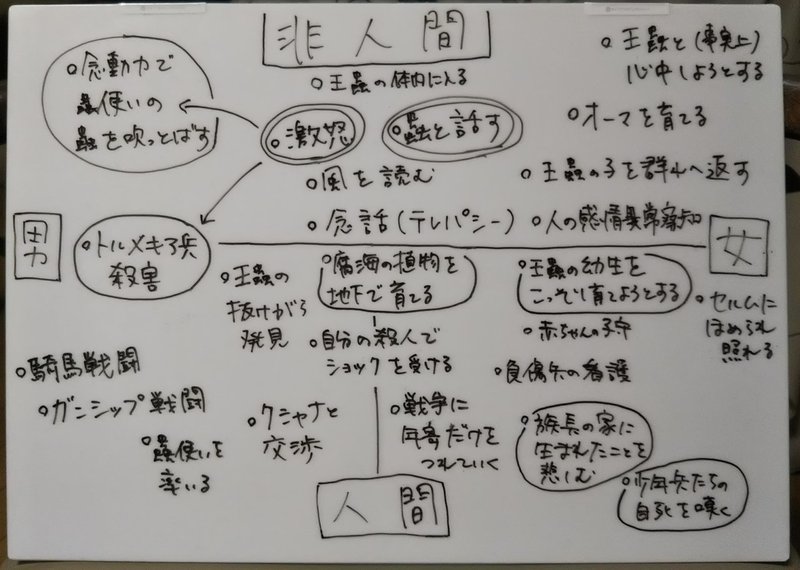 非人間
○王蟲の体内に入る
○念動力で
蟲使いの
蟲を吹っとばす
○激怒
○蟲と話す
○王蟲と(事実上)
心中しようとする
○オーマを育てる
○風を読む
○王蟲の子を群れへ返す
○念話(テレパシー)
○人の感情異常察知
男
○トルメキア兵
殺害
女
○王蟲の
抜けがら
発見
○腐海の植物を
地下で育てる
○王蟲の幼生を
こっそり育てようとする
○セルムに
ほめられ
照れる
○自分の殺人で
ショックを受ける
○赤ちゃんの子守
○負傷兵の看護
○騎馬戦闘
○ガンシップ戦闘
○蟲使いを
率いる
○クシャナと
交渉
○戦争に
年寄だけを
つれていく
○族長の家に
生まれたことを
悲しむ
○少年兵たちの
自死を嘆く
人間